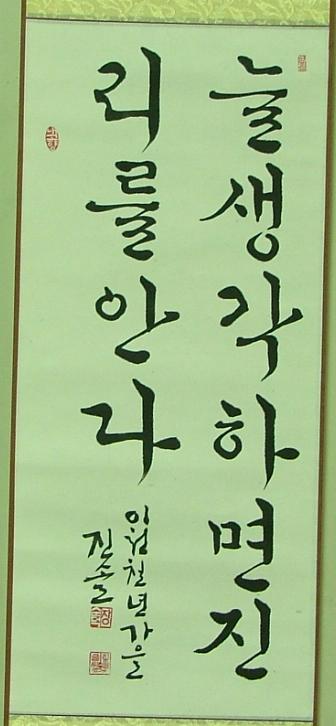 늘생각하면진
리를안다
이천년가을
진솔